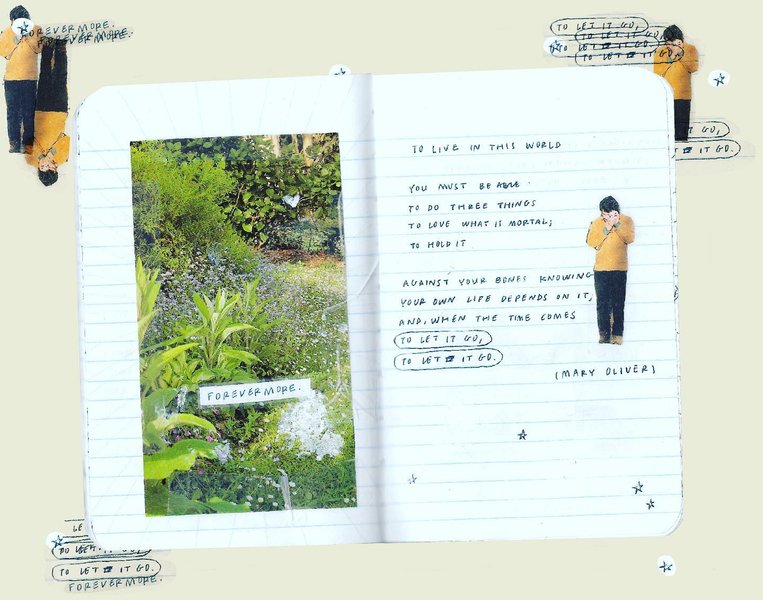 FOREVERMORE.
FOREVERMORE.
TO LET IT GO,
TO LET IT GO,
TO LET IT GO,
TO LET IT GO.
GO,
IT GO.
TO LIVE IN THIS WORLD
YOU MUST BE ABLE
TO DO THREE THINGS
TO LOVE WHAT IS MORTAL;
TO HOLD IT
AGAINST YOUR BONES KNOWING
YOUR OWN LIFE DEPENDS ON IT,
AND, WHEN THE TIME COMES
TO LET IT GO,
TO LET IT GO.
(MARY OLIVER)
FOREVERMORE.
LE
TO LET IT GO,
TO LET IT GO.
FOREVERMORE.